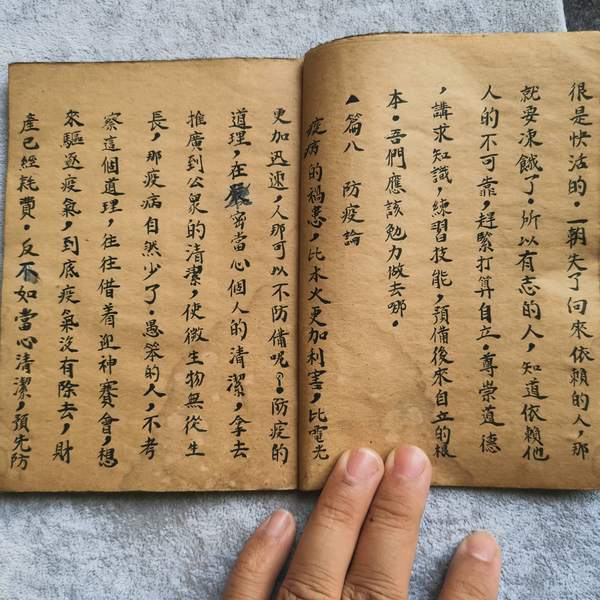 很是快活的．一朝失了向來依賴的人，那
就要凍餓了．所以有志的人，知道依賴他
人的不可靠，趕緊打算自立．尊崇道德
，講求知識，練習技能，預備後來自立的根
本．吾們應該勉力做去哪．
▲篇八 防疫論
疫病的禍患，比水火更加利害，比電光
更加迅速，人那可以不防備呢？防疫的
道理，在嚴密當心個人的清潔，拿去
推廣到公眾的清潔，使微生物無從生
長，那疫病自然少了．愚笨的人，不考
察這個道理，往往借着迎神賽會，想
來驅逐疫氣，到底疫氣沒有除去，財
產已經耗費．反不如當心清潔，預先防